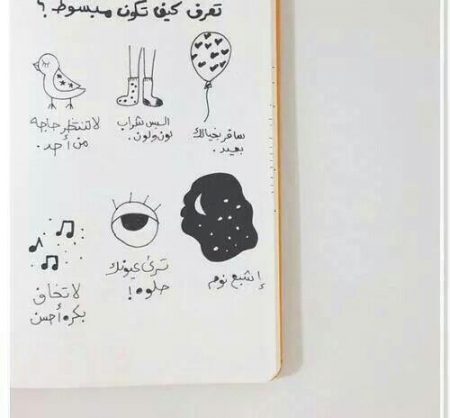 تعرف كيف تكون مبسوط ؟
سافر بخيالك
بعيد.
البس شراب
لون ولون.
لا تنتظر حاجه
من أحد.
إشبع نوم
ترى عيونك
حلوه!
لا تخاف
بكره أحسن